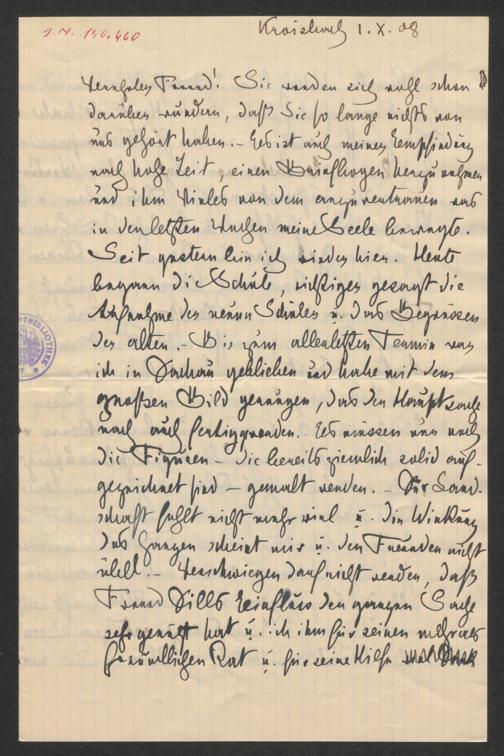 J. N. 146.460
Kroisbach 1.X.08
Verehrter Freund! Sie werden sich wohl schon
darüber wundern, daß Sie so lange nichts von
uns gehört haben. – Es ist auch meiner Empfindung
nach hohe Zeit, einen Briefbogen herzunehmen
und ihm Vieles von dem anzuvertrauen was
in den letzten Wochen meine Seele bewegte.
Seit gestern bin ich wieder hier. Heute
begann die Schule, richtiger gesagt die
Aufnahme der neuen Schüler u. das Begrüssen
der alten. – Bis zum allerletzten Termin war
ich in Dachau geblieben und habe mit dem
großen Bild gerungen, das der Hauptsache
nach auch fertig worden. Es müssen nur noch
die Figuren – die bereits ziemlich solid auf-
gezeichnet sind – gemalt werden. – Für Land-
schaft fehlt nicht mehr viel u. die Wirkung
des Ganzen scheint mir u. den Freunden nicht
übel. – Verschwiegen darf nicht werden, daß
Freund Dills Einfluss der ganzen Sache
sehr genützt hat u. ich ihm für seinen
freundlichen Rat u. für seine Hilfe Dank